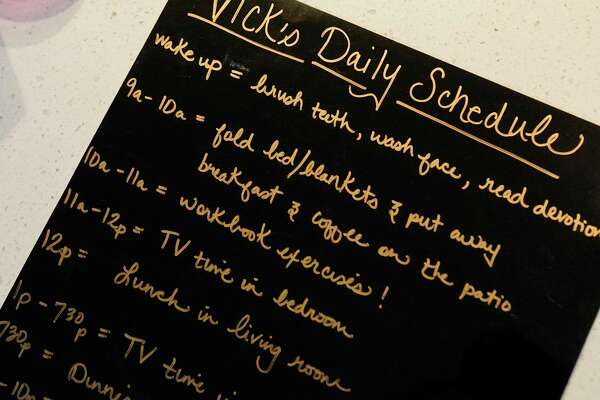 Vick's Daily Schedule
wake up = brush teeth, wash face, read devotion
9a-10a = fold bed/blankets & put away
breakfast & coffee on the patio
10a-11a = workbook exercises!
11a-12p = TV time in bedroom
12p = Lunch in living room
1p-730p = TV time
730p =